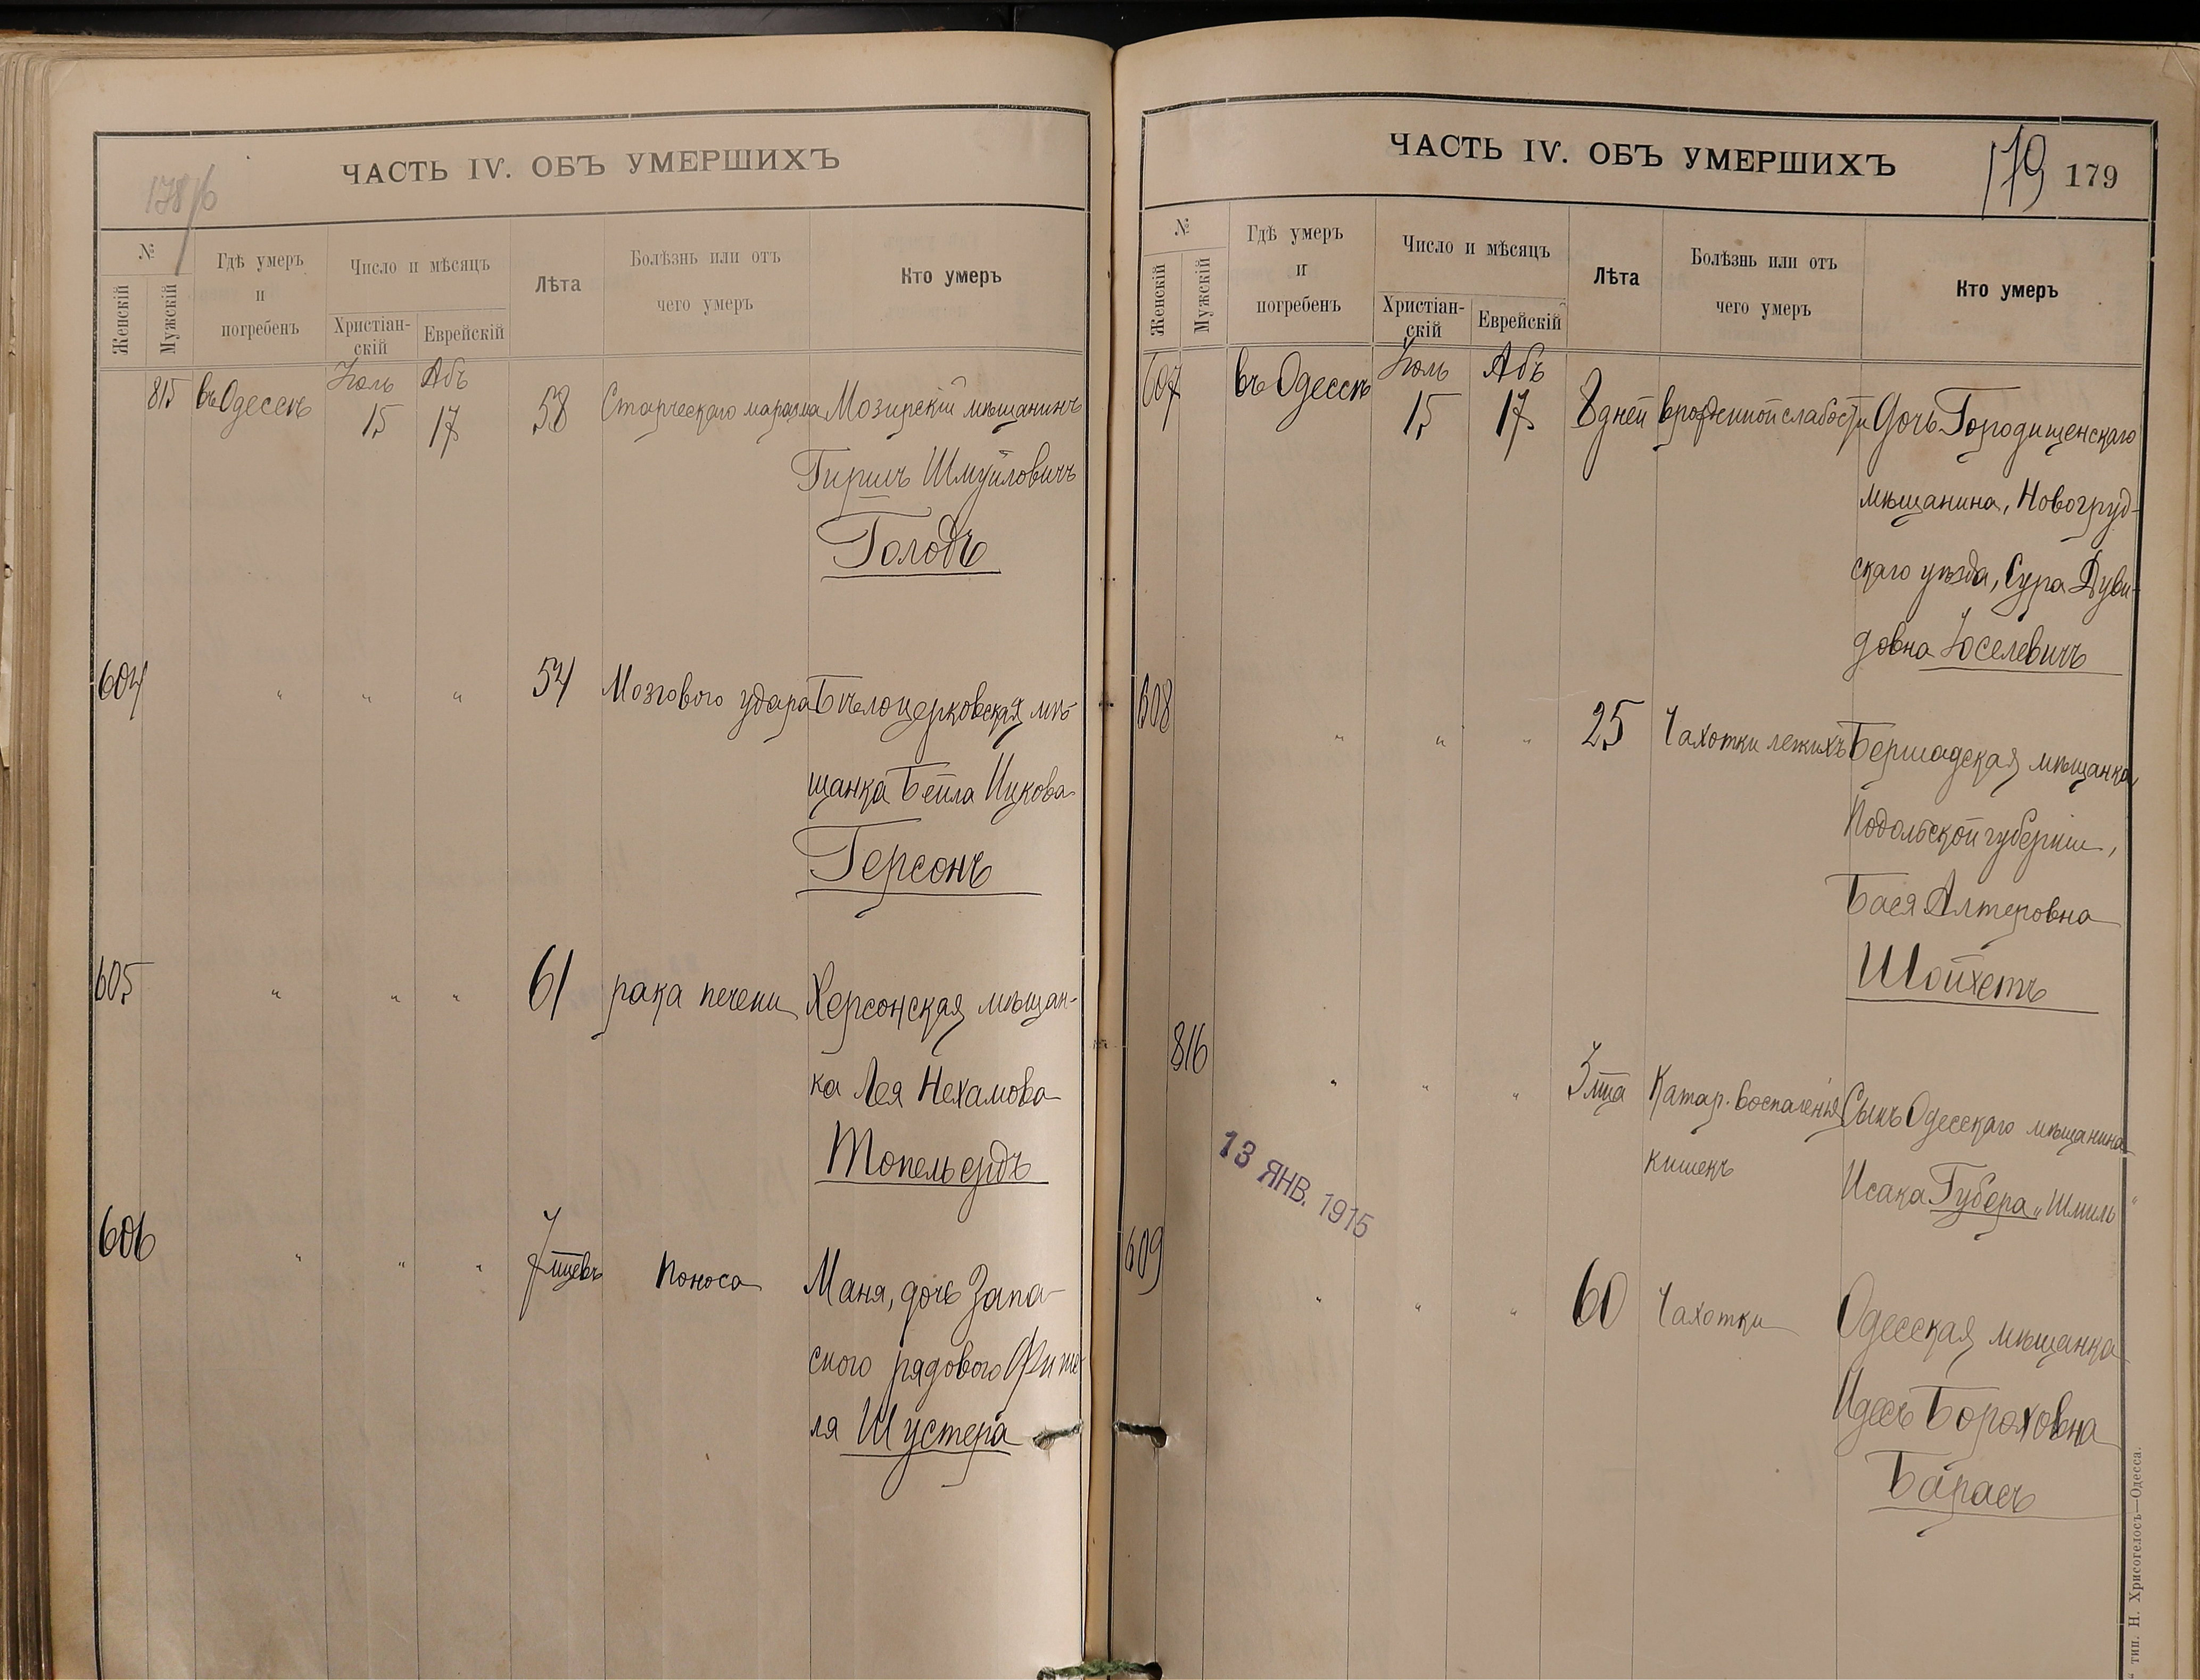 178/б
ЧАСТЬ IV. ОБЪ УМЕРШИХЪ
№
Женскій
Мужскій
Гдѣ умеръ
и
погребенъ
Число и мѣсяцъ
Христіан-
скій
Еврейскій
Лѣта
Болѣзнь или отъ
чего умеръ
Кто умеръ
815 въ Одессѣ Іюль 15 Абъ 17 58 Старческаго маразма Мозирскій мѣщанинъ
Гиршъ Шмуйловичъ
Голодъ
604 " " " 54 Мозгового удара Бѣлоцерковская мѣ-
щанка Бейла Ицкова
Герсонъ
605 " " " 61 рака печени Херсонская мѣщан-
ка Лея Нехамова
Топельсудъ
606 " " " 7 мцевъ Поноса Маня, дочь Запа-
сного рядового Фите
ля Шустера
ЧАСТЬ IV. ОБЪ УМЕРШИХЪ
179 179
№
Женскій
Мужскій
Гдѣ умеръ
и
погребенъ
Число и мѣсяцъ
Христіан-
скій
Еврейскій
Лѣта
Болѣзнь или отъ
чего умеръ
Кто умеръ
607 въ Одессѣ Іюль 15 Абъ 17 8 дней врожденной слабости Дочь Городищенскаго
мѣщанина, Новогруд-
скаго уѣзда, Сура Дуви-
довна Іоселевичъ
608 " " " 25 Чахотки легкихъ Бершадская мѣщанка
Подольской губерніи,
Бася Алтеровна
Шойхетъ
816 " " " 3 мца Катар. воспаленія Сынъ Одесскаго мѣщанина
кишекъ Исака Губера „Шмиль"
13 ЯНВ. 1915
609 " " " 60 Чахотки Одесская мѣщанка
Идесъ Бороховна
Барасъ
тип. Н. Хрисогелосъ—Одесса.